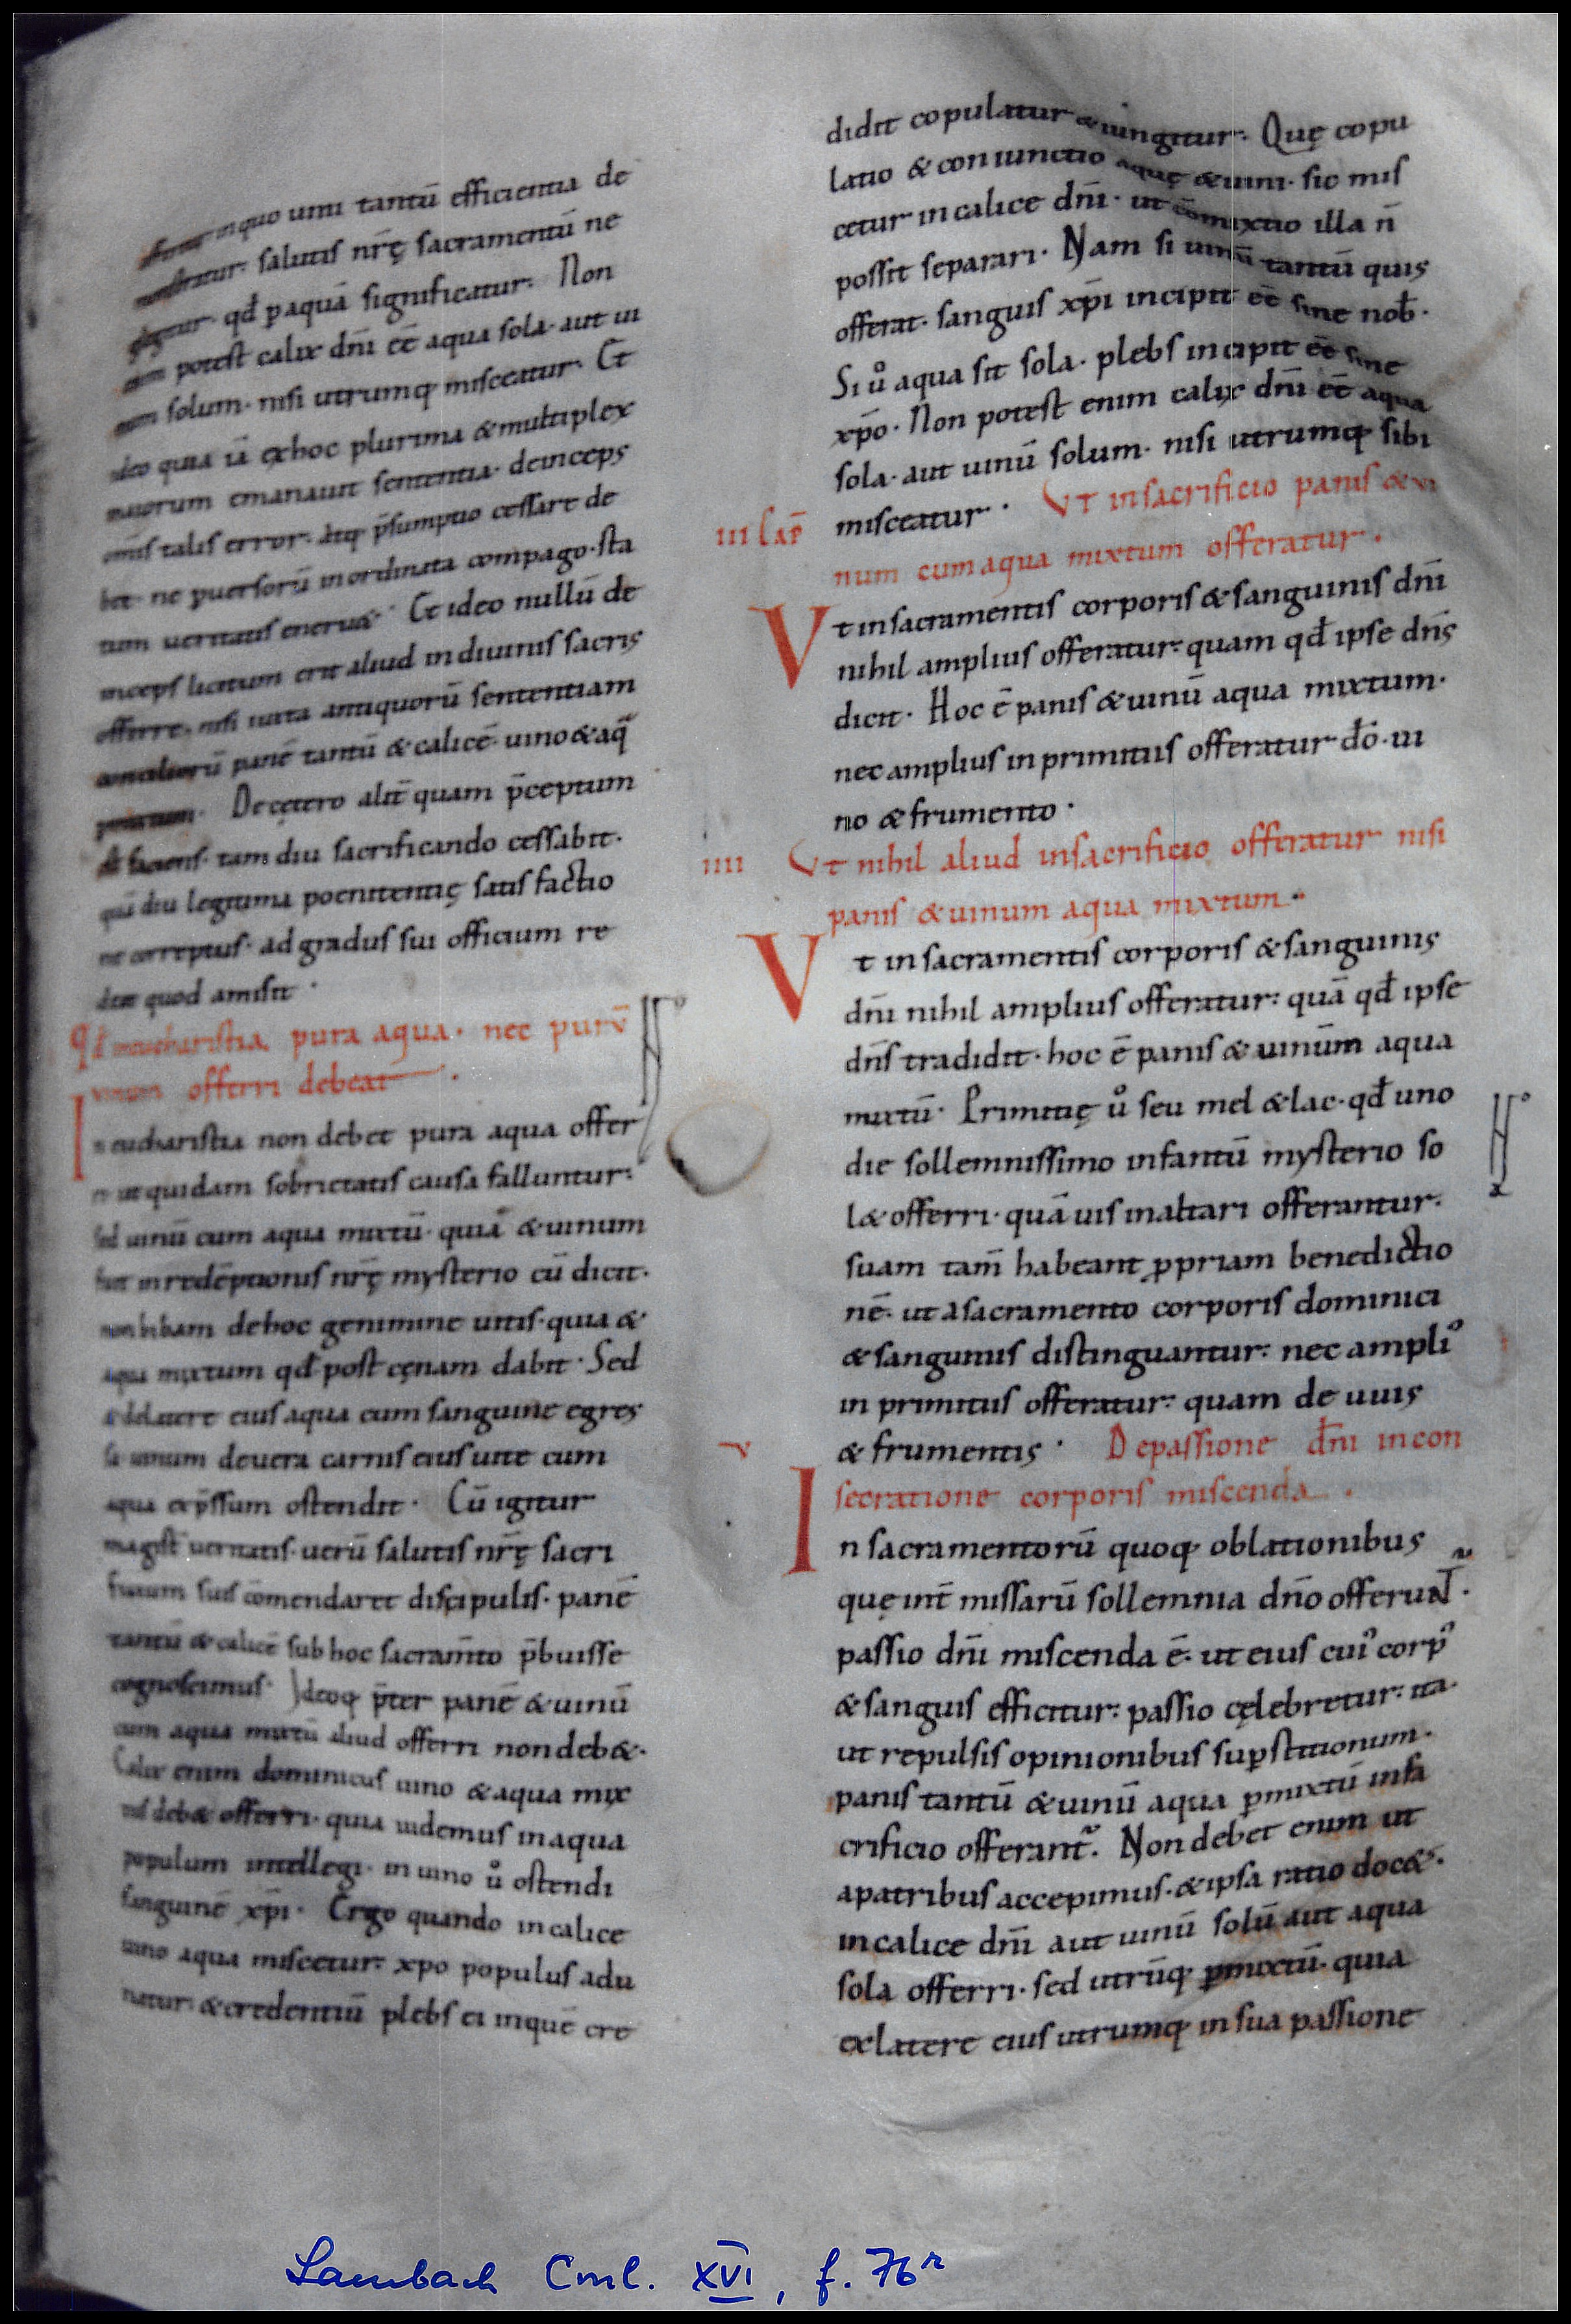 in quo uini tantū efficientia de
monstratur. salutis nr̄ę sacramentū ne
gligitur. qd̄ p aquā significatur. Non
enim potest calix dn̄i ēē aqua sola. aut ui
num solum. nisi utrumq; misceatur. Et
ideo quia iā ex hoc plurima & multiplex
maiorum emanauit sententia. deinceps
om̄is talis error. atq; p̄sumptio cessare de
bet. ne puersorū inordinata compago. sta
tum ueritatis eneru&. Et ideo nullū de
inceps licitum erit aliud in diuinis sacris
offerre. nisi iuxta antiquorū sententiam
conciliorū panē tantū & calicē. uino & aq̄
De cętero alit̄ quam p̄ceptum
ē faciens. tam diu sacrificando cessabit.
quā diu legitima poenitentię satisfactio
ne correptus. ad gradus sui officium re
deat quod amisit.
Qd̄ in eucharistia pura aqua. nec purū
uinum offerri debeat.
In eucharistia non debet pura aqua offer
ri ut quidam sobrietatis causa falluntur.
sed uinū cum aqua mixtū. quia & uinum
fuit in redēptionis nr̄ę mysterio cū dicit.
non bibam de hoc genimine uitis. quia &
aqua mixtum qd̄ post cęnam dabit. Sed
& de latere eius aqua cum sanguine egres
sa uinum de uera carnis eius uite cum
aqua exp̄ssum ostendit. Cū igitur
magist̄ ueritatis. uerū salutis nr̄ę sacri
ficium suis cōmendaret discipulis. panē
tantū & calicē sub hoc sacram̄to p̄buisse
cognoscimus. Ideoq; p̄ter panē & uinū
cum aqua mixtū aliud offerri non deb&.
Calix enim dominicus uino & aqua mix
tus deb& offerri. quia uidemus in aqua
populum intellegi. in uino ů ostendi
sanguinē xp̄i. Ergo quando in calice
uino aqua miscetur. xpo populus adu
natur. & credentiū plebs ei in quē cre
didit copulatur & iungitur. Quę copu
latio & coniunctio aquę & uini. sic mis
cetur in calice dn̄i. ut cōmixtio illa n̄
possit separari. Nam si uinū tantū quis
offerat. sanguis xp̄i incipit ēē sine nob̄.
Si ů aqua sit sola. plebs incipit ēē sine
xp̄o. Non potest enim calix dn̄i ēē aqua
sola. aut uinū solum. nisi utrumq; sibi
misceatur. Vt in sacrificio panis & ui
III CAP̄
num cum aqua mixtum offeratur.
Vt in sacramentis corporis & sanguinis dn̄i
nihil amplius offeratur. quam qd̄ ipse dn̄s
dicit. Hoc ē panis & uinū aqua mixtum.
nec amplius in primitiis offeratur dō. ui
no & frumento.
IIII Vt nihil aliud in sacrificio offeratur nisi
panis & uinum aqua mixtum.
Vt in sacramentis corporis & sanguinis
dn̄i nihil amplius offeratur. quā qd̄ ipse
dn̄s tradidit. hoc ē panis & uinūm aqua
mixtū. Primitię ů seu mel & lac. qd̄ uno
die sollemnissimo infantū mysterio so
l& offerri. quā uis in altari offerantur.
suam tam̄ habeant ppriam benedictio
nē. ut a sacramento corporis dominici
& sanguinis distinguantur. nec ampli᾽
in primitiis offeratur. quam de uuis
& frumentis. De passione dn̄i in con
V
secratione corporis miscenda.
In sacramentorū quoq; oblationibus
quę int̄ missarū sollemnia dn̄o offerunt̄.
passio dn̄i miscenda ē. ut eius cui᾽ corp᾽
& sanguis efficitur. passio cęlebretur. ita.
ut repulsis opinionibus supstitionum.
panis tantū & uinū aqua pmixtū in sa
crificio offerant̄. Non debet enim ut
a patribus accepimus. & ipsa ratio doc&.
in calice dn̄i aut uinū solū aut aqua
sola offerri. sed utrūq; pmixtū. quia
ex latere eius utrumq; in sua passione
Lambach Cml. XVI, f. 76r